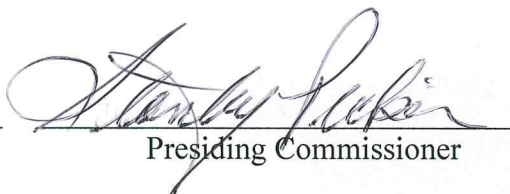 Stanley
Presiding Commissioner